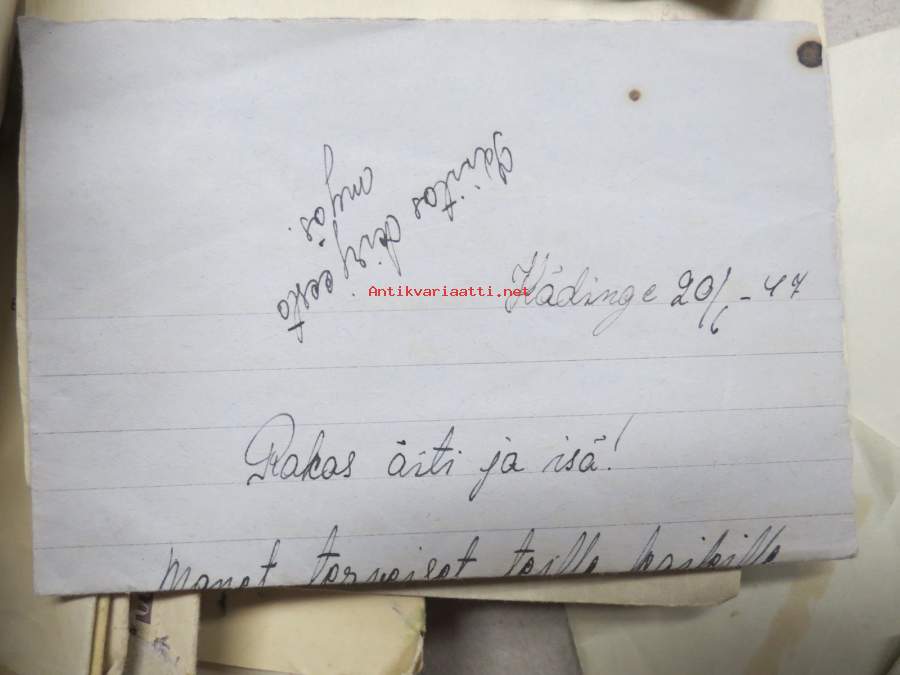 Kiitos kirjeestä
myös.
Antikvariaatti.net
Kådinge 20/6 - 47
Rakas äiti ja isä!
Monet terveiset teille kaikille